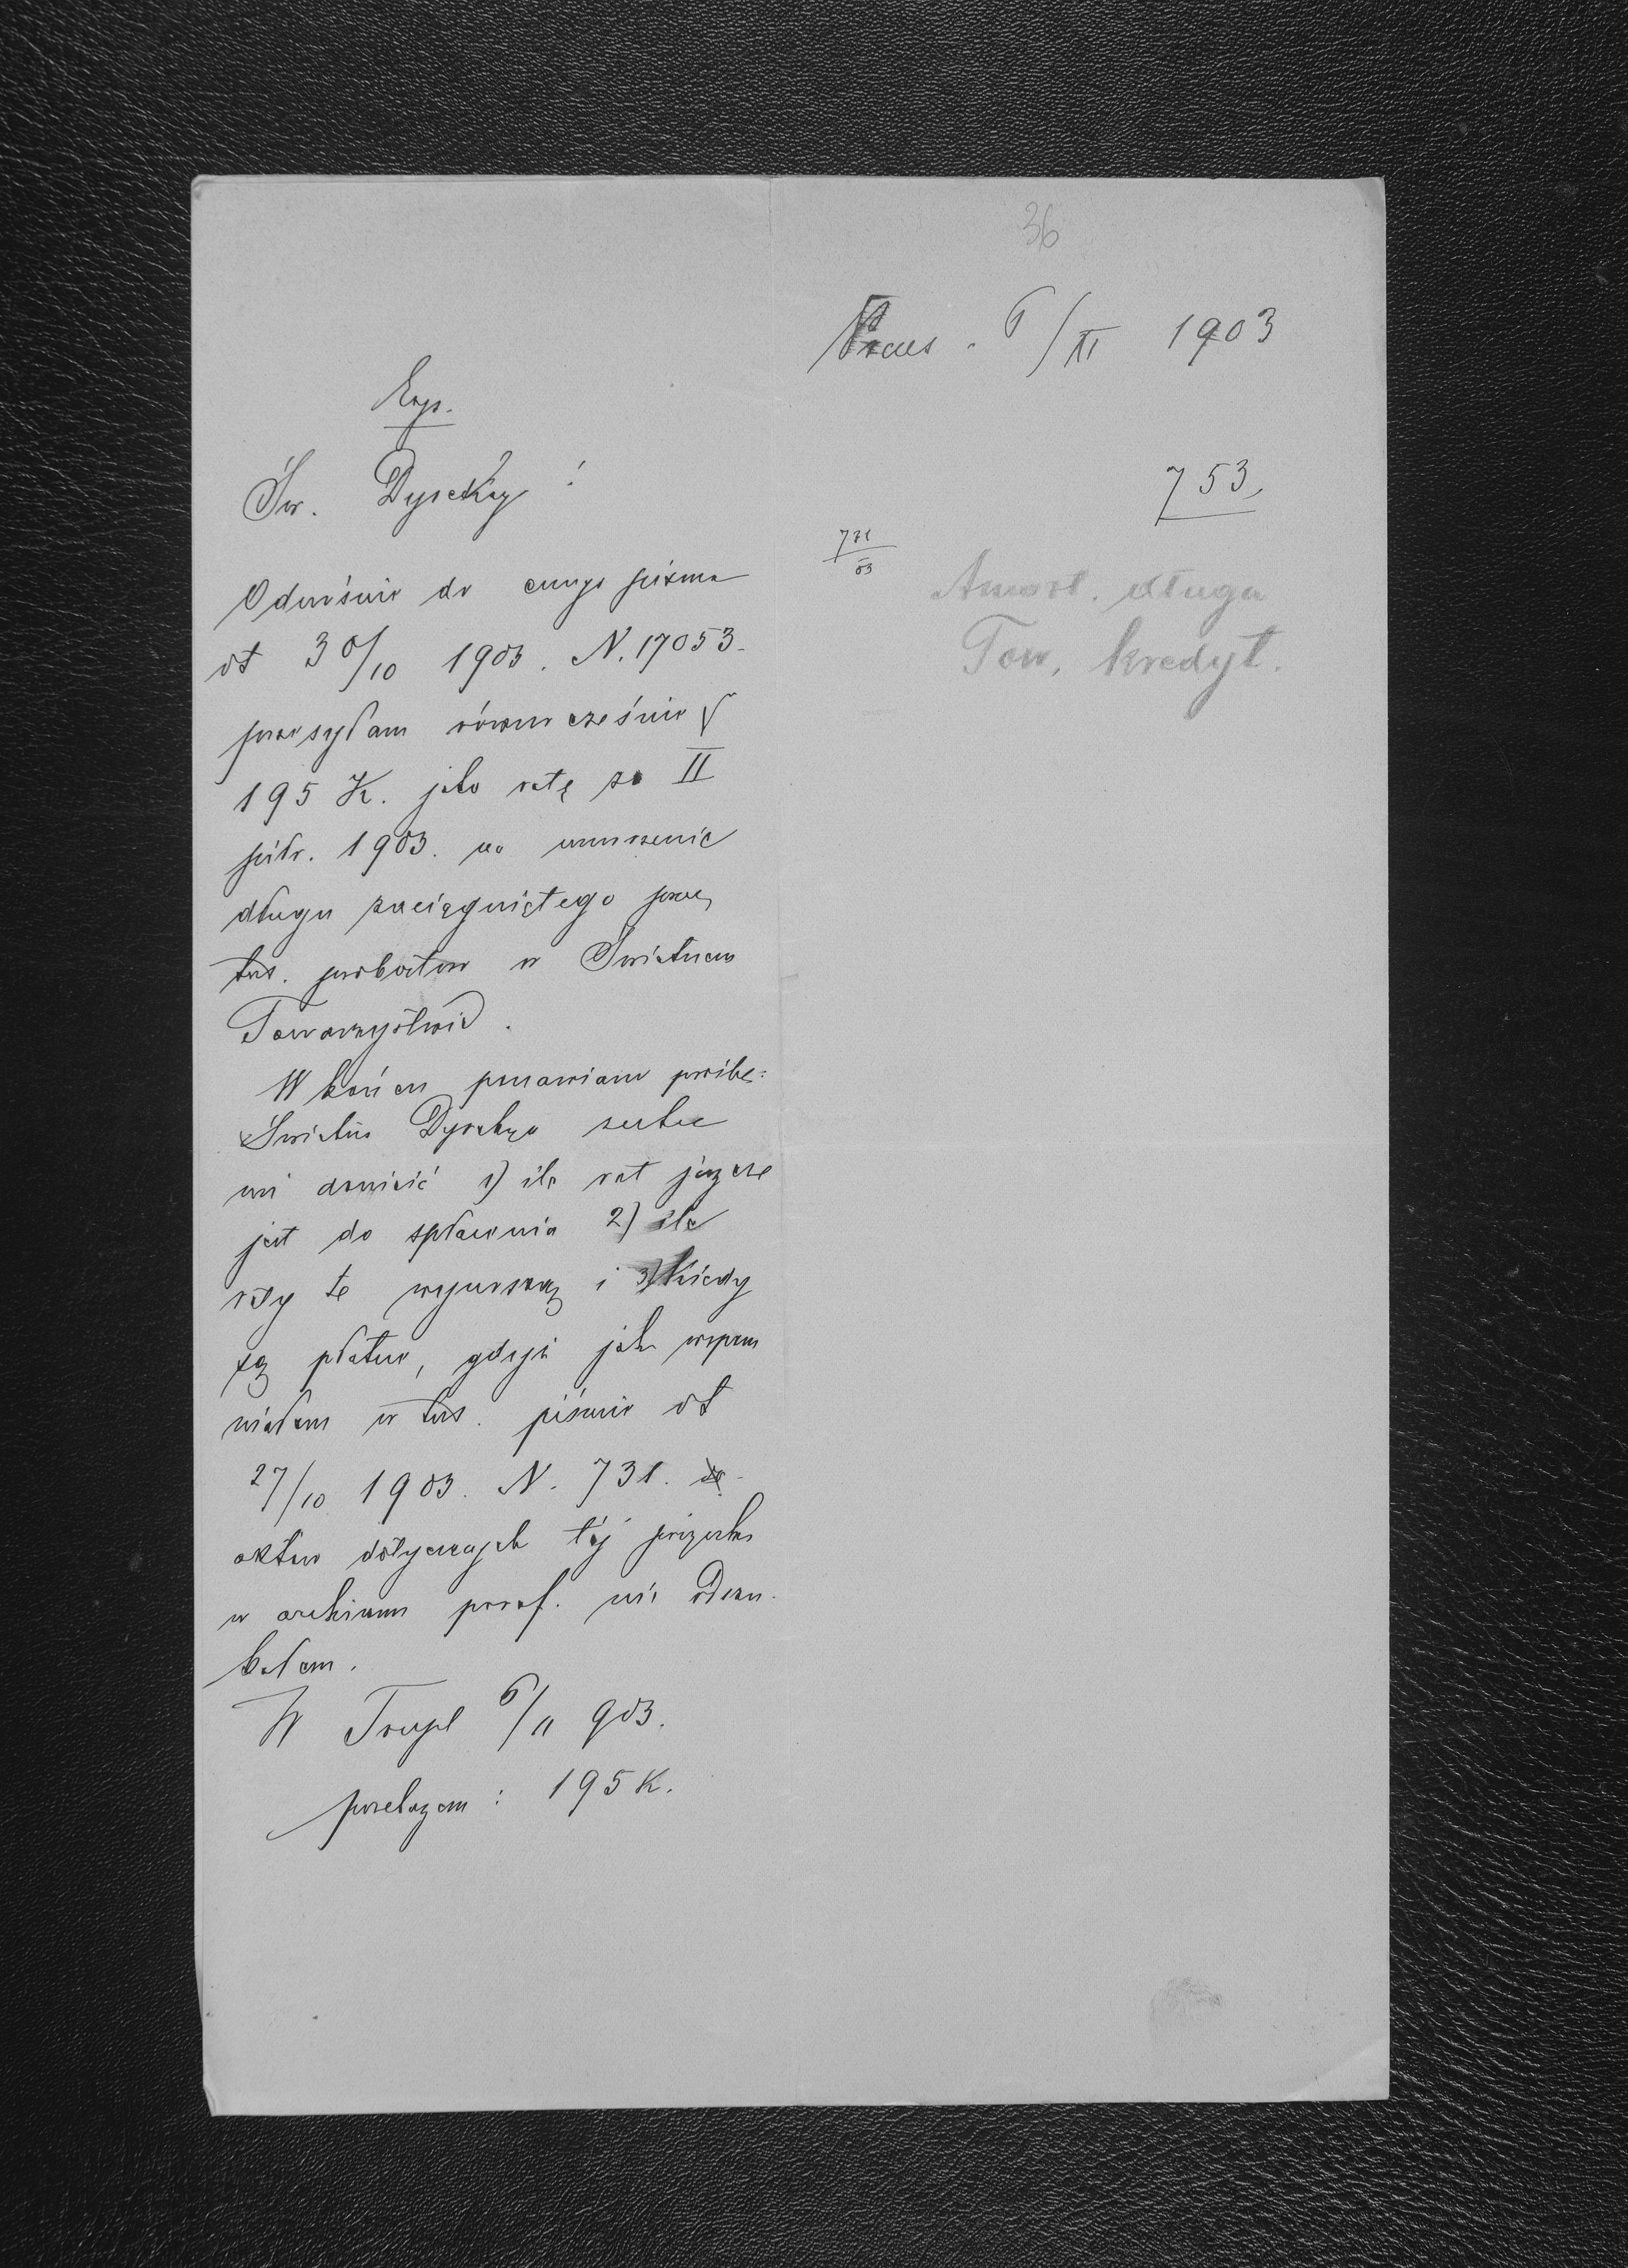 36
6/XI 1903
753,
731
03
Amort. długu
Tow. kredyt.
Exp.
Św. Dyrekcyo!
Odnośnie do cnego pisma
ot 30/10 1903. N. 17053.
przesyłam równocześnie
195 K. jako ratę za II
półr. 1903. na umorzenie
długu zaciągniętego przez
tut. probostwo w Świetnem
Towarzystwie.
W końcu ponawiam prośbę:
Świetna Dyrekcyo zechce
mi donieść 1) ile rat jeszcze
jest do spłacenia 2) ile
raty te wynoszą i 3) kiedy
są płatne, gdyż jak wspom
niałem w tut. piśmie ot
27/10 1903. N. 731.
aktów dotyczących tej pożyczki
w archiwum paraf. nie odszu
kałem.
W 6/11 903.
przekazem: 195 K.